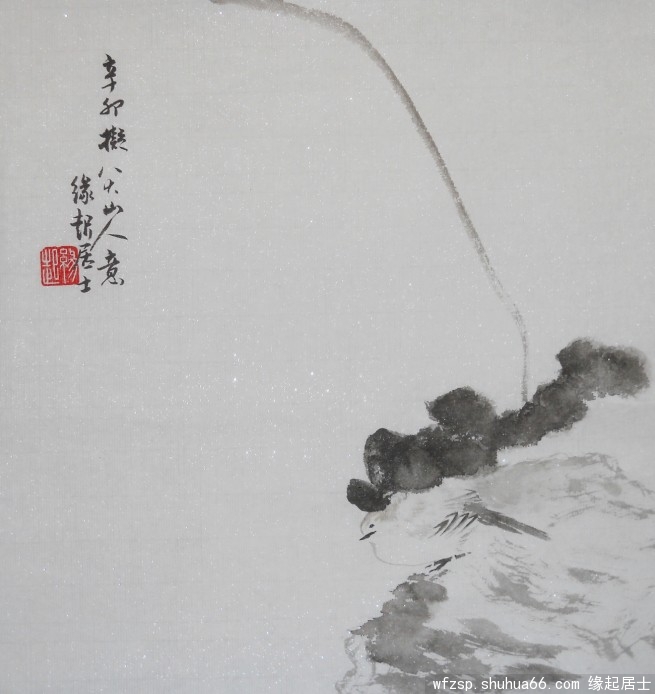 辛卯擬八大山人意
緣起居士
緣起
wfzsp.shuhua66.com 缘起居士